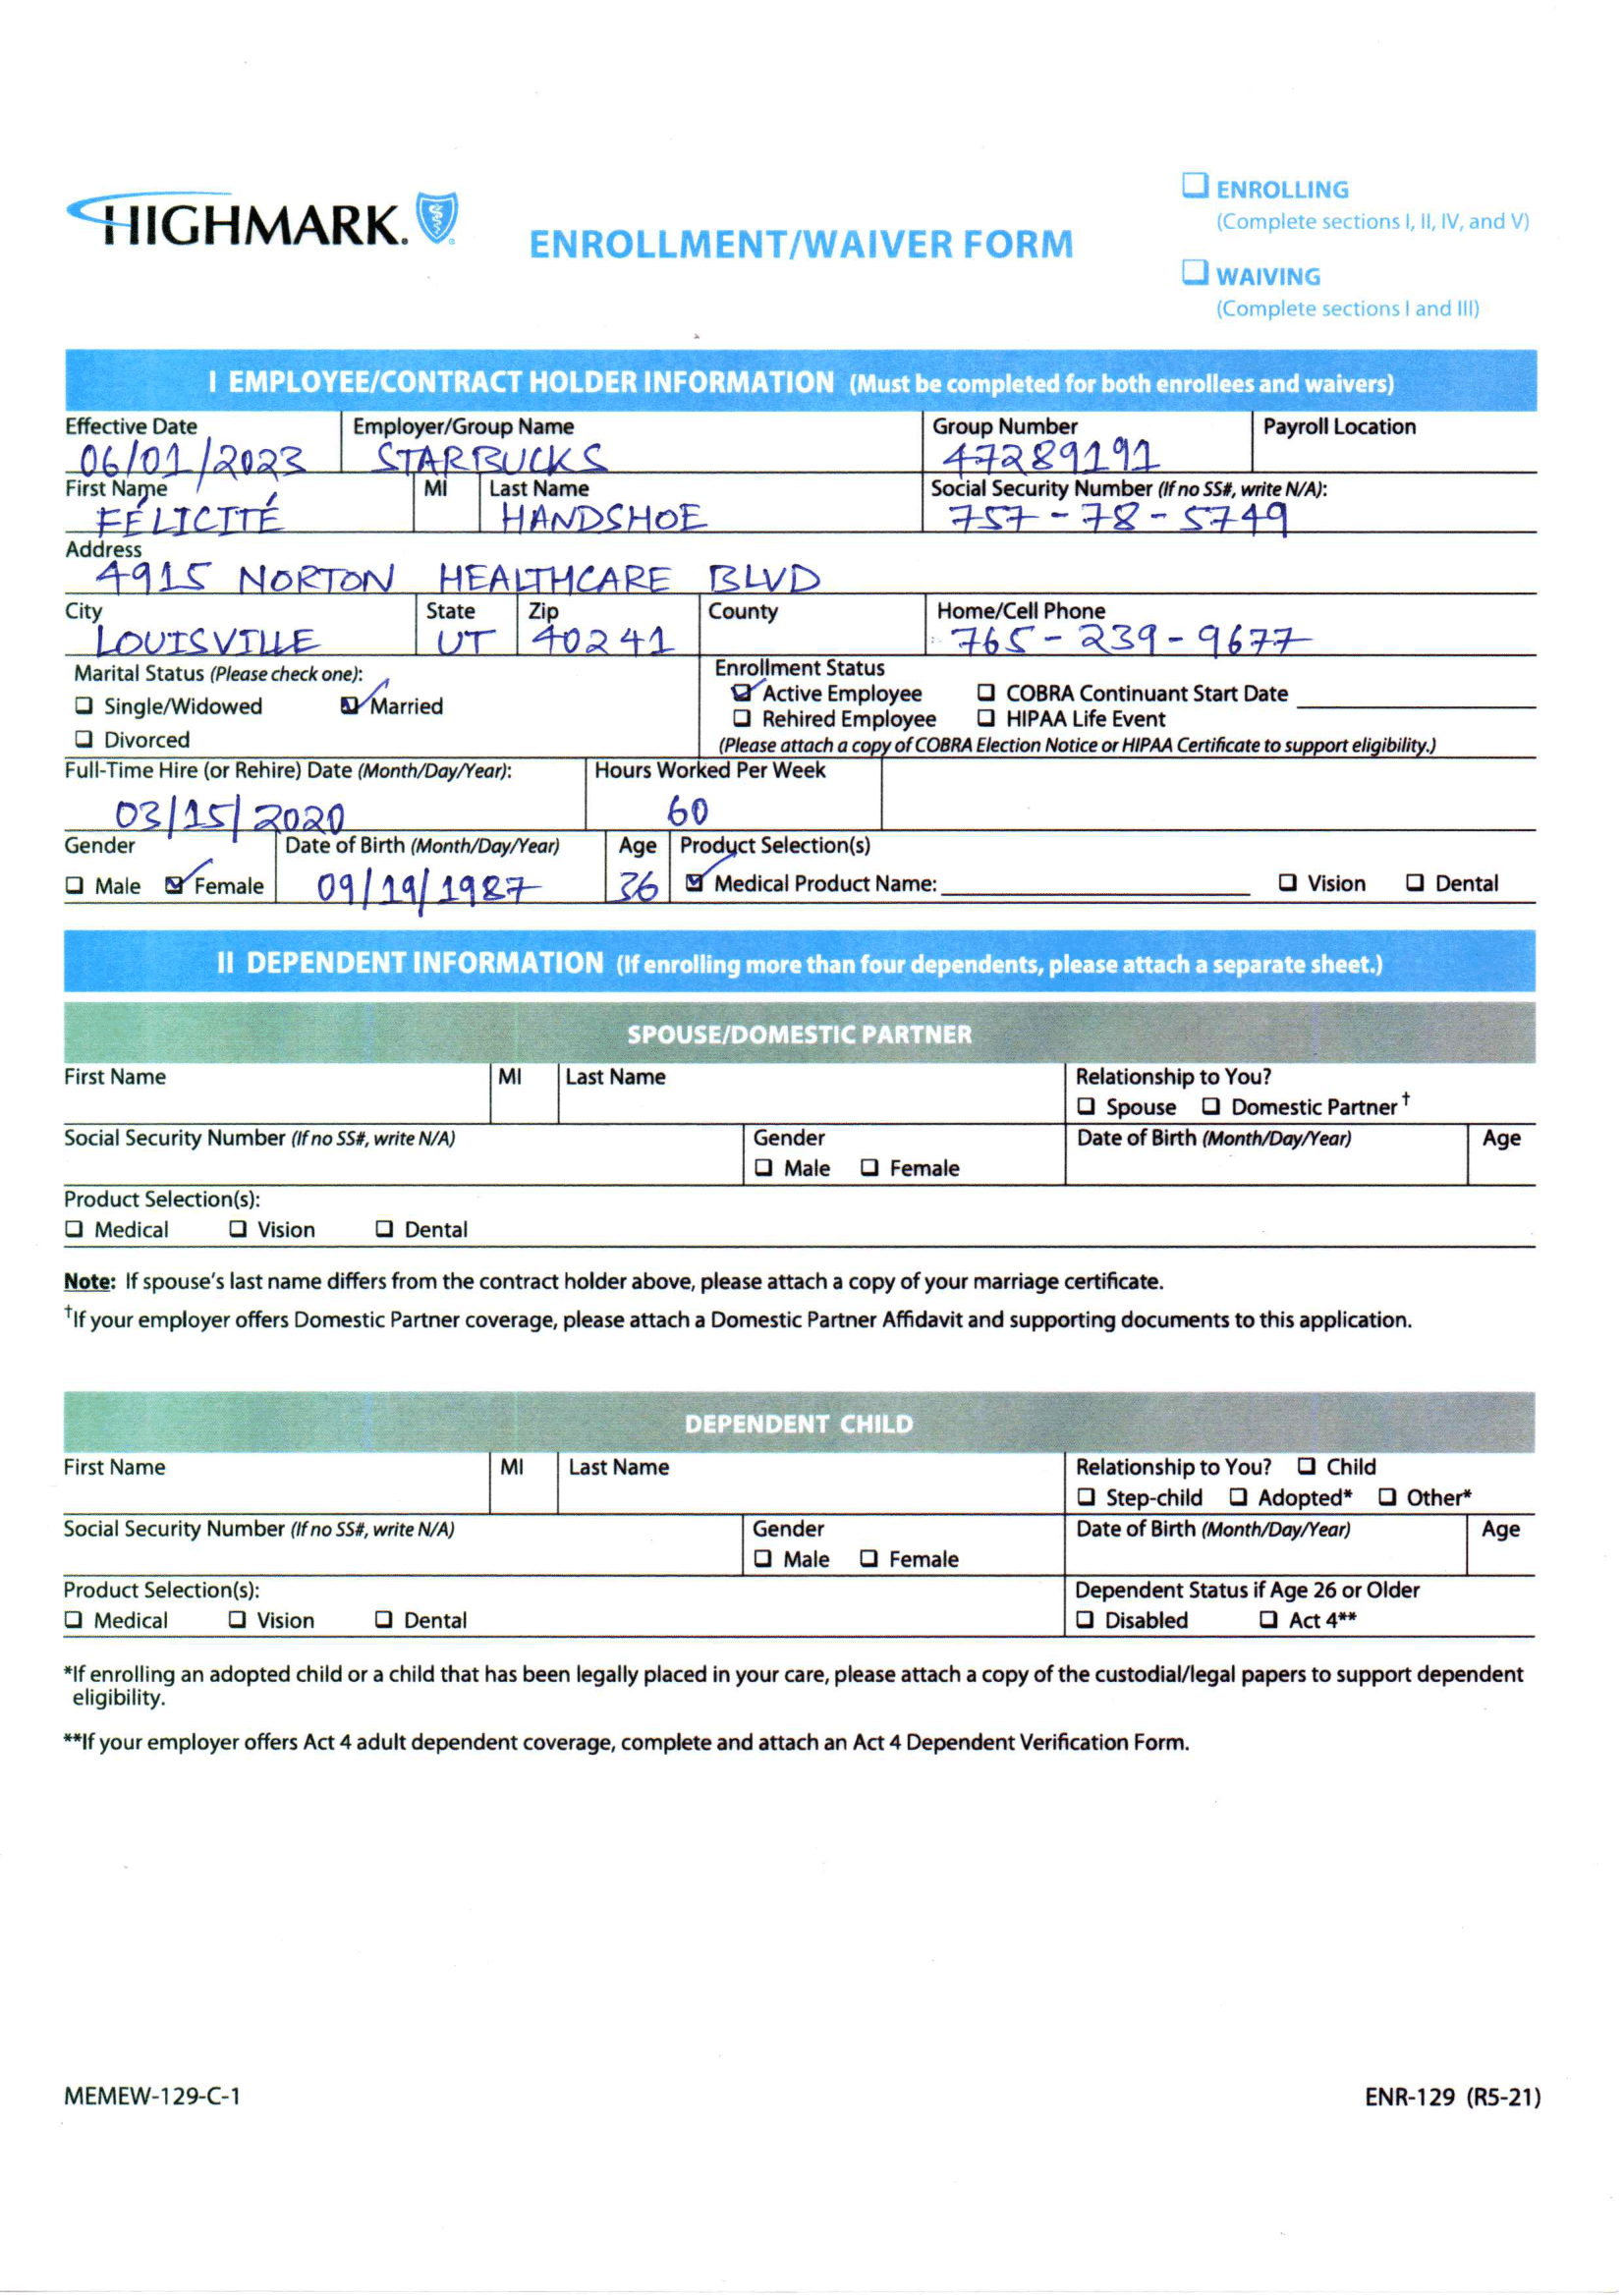 HIGHMARK.
ENROLLMENT/WAIVER FORM
ENROLLING
(Complete sections I, II, IV, and V)
WAIVING
(Complete sections I and III)
I EMPLOYEE/CONTRACT HOLDER INFORMATION (Must be completed for both enrollees and waivers)
Effective Date Employer/Group Name Group Number Payroll Location
06/01/2023 STARBUCKS 47289191
First Name MI Last Name Social Security Number (If no SS#, write N/A):
FÉLICITÉ HANDSHOE 757-78-5749
Address
4915 NORTON HEALTHCARE BLVD
City State Zip County Home/Cell Phone
LOUISVILLE UT 40241 765-239-9677
Marital Status (Please check one): Enrollment Status
Single/Widowed Married Active Employee COBRA Continuant Start Date
Rehired Employee HIPAA Life Event
Divorced (Please attach a copy of COBRA Election Notice or HIPAA Certificate to support eligibility.)
Full-Time Hire (or Rehire) Date (Month/Day/Year): Hours Worked Per Week
03/15/2020 60
Gender Date of Birth (Month/Day/Year) Age Product Selection(s)
Male Female 09/19/1987 36 Medical Product Name: Vision Dental
II DEPENDENT INFORMATION (If enrolling more than four dependents, please attach a separate sheet.)
SPOUSE/DOMESTIC PARTNER
First Name MI Last Name Relationship to You?
Spouse Domestic Partner†
Social Security Number (If no SS#, write N/A) Gender Date of Birth (Month/Day/Year) Age
Male Female
Product Selection(s):
Medical Vision Dental
Note: If spouse's last name differs from the contract holder above, please attach a copy of your marriage certificate.
†If your employer offers Domestic Partner coverage, please attach a Domestic Partner Affidavit and supporting documents to this application.
DEPENDENT CHILD
First Name MI Last Name Relationship to You? Child
Step-child Adopted* Other*
Social Security Number (If no SS#, write N/A) Gender Date of Birth (Month/Day/Year) Age
Male Female
Product Selection(s): Dependent Status if Age 26 or Older
Medical Vision Dental Disabled Act 4**
*If enrolling an adopted child or a child that has been legally placed in your care, please attach a copy of the custodial/legal papers to support dependent
eligibility.
**If your employer offers Act 4 adult dependent coverage, complete and attach an Act 4 Dependent Verification Form.
MEMEW-129-C-1 ENR-129 (R5-21)